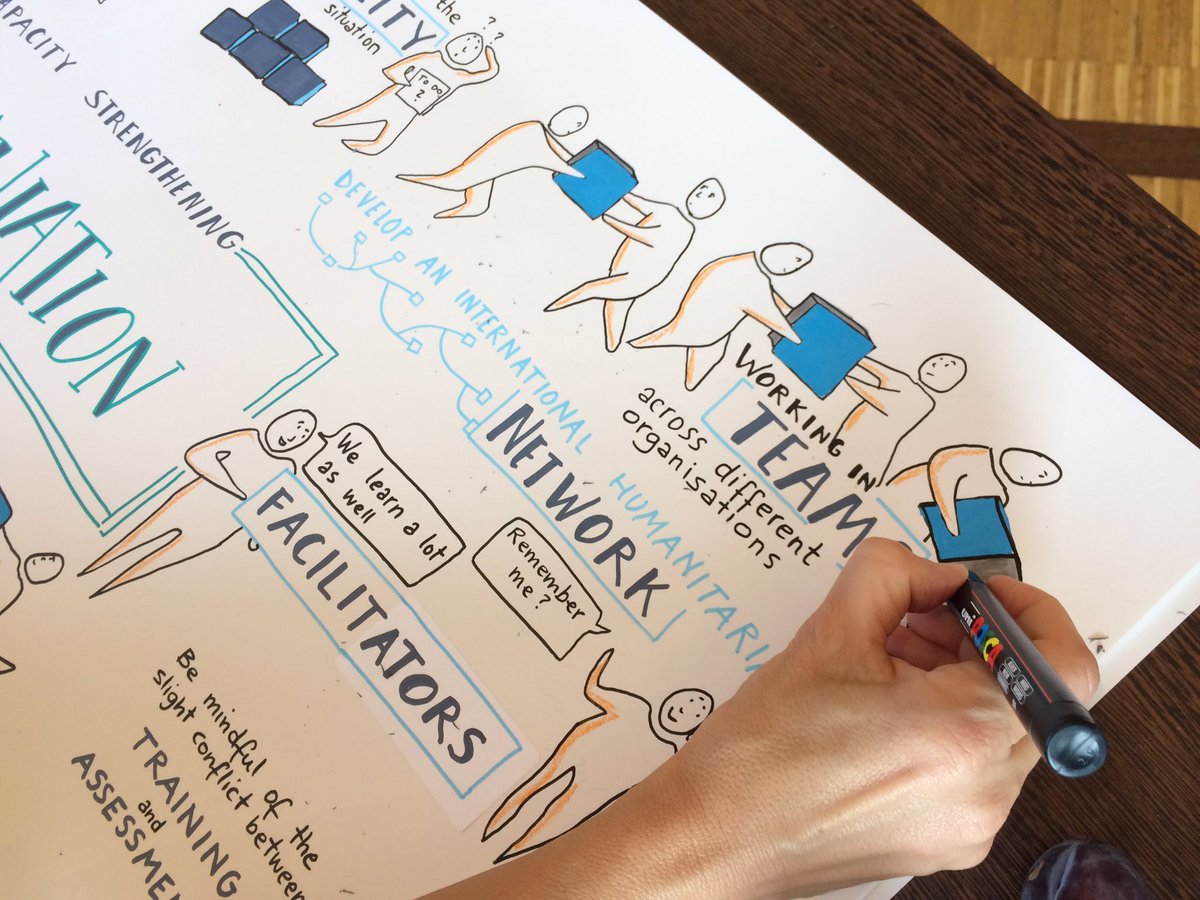 CAPACITY
STRENGTHENING
the
situation
TO DO
?
? ?
DEVELOP AN INTERNATIONAL
HUMANITARIAN
NETWORK
WORKING IN
TEAMS
across different
organisations
We learn a lot
as well
FACILITATORS
Remember
me?
Be mindful of the
slight conflict between
TRAINING
and
uni
POSCA